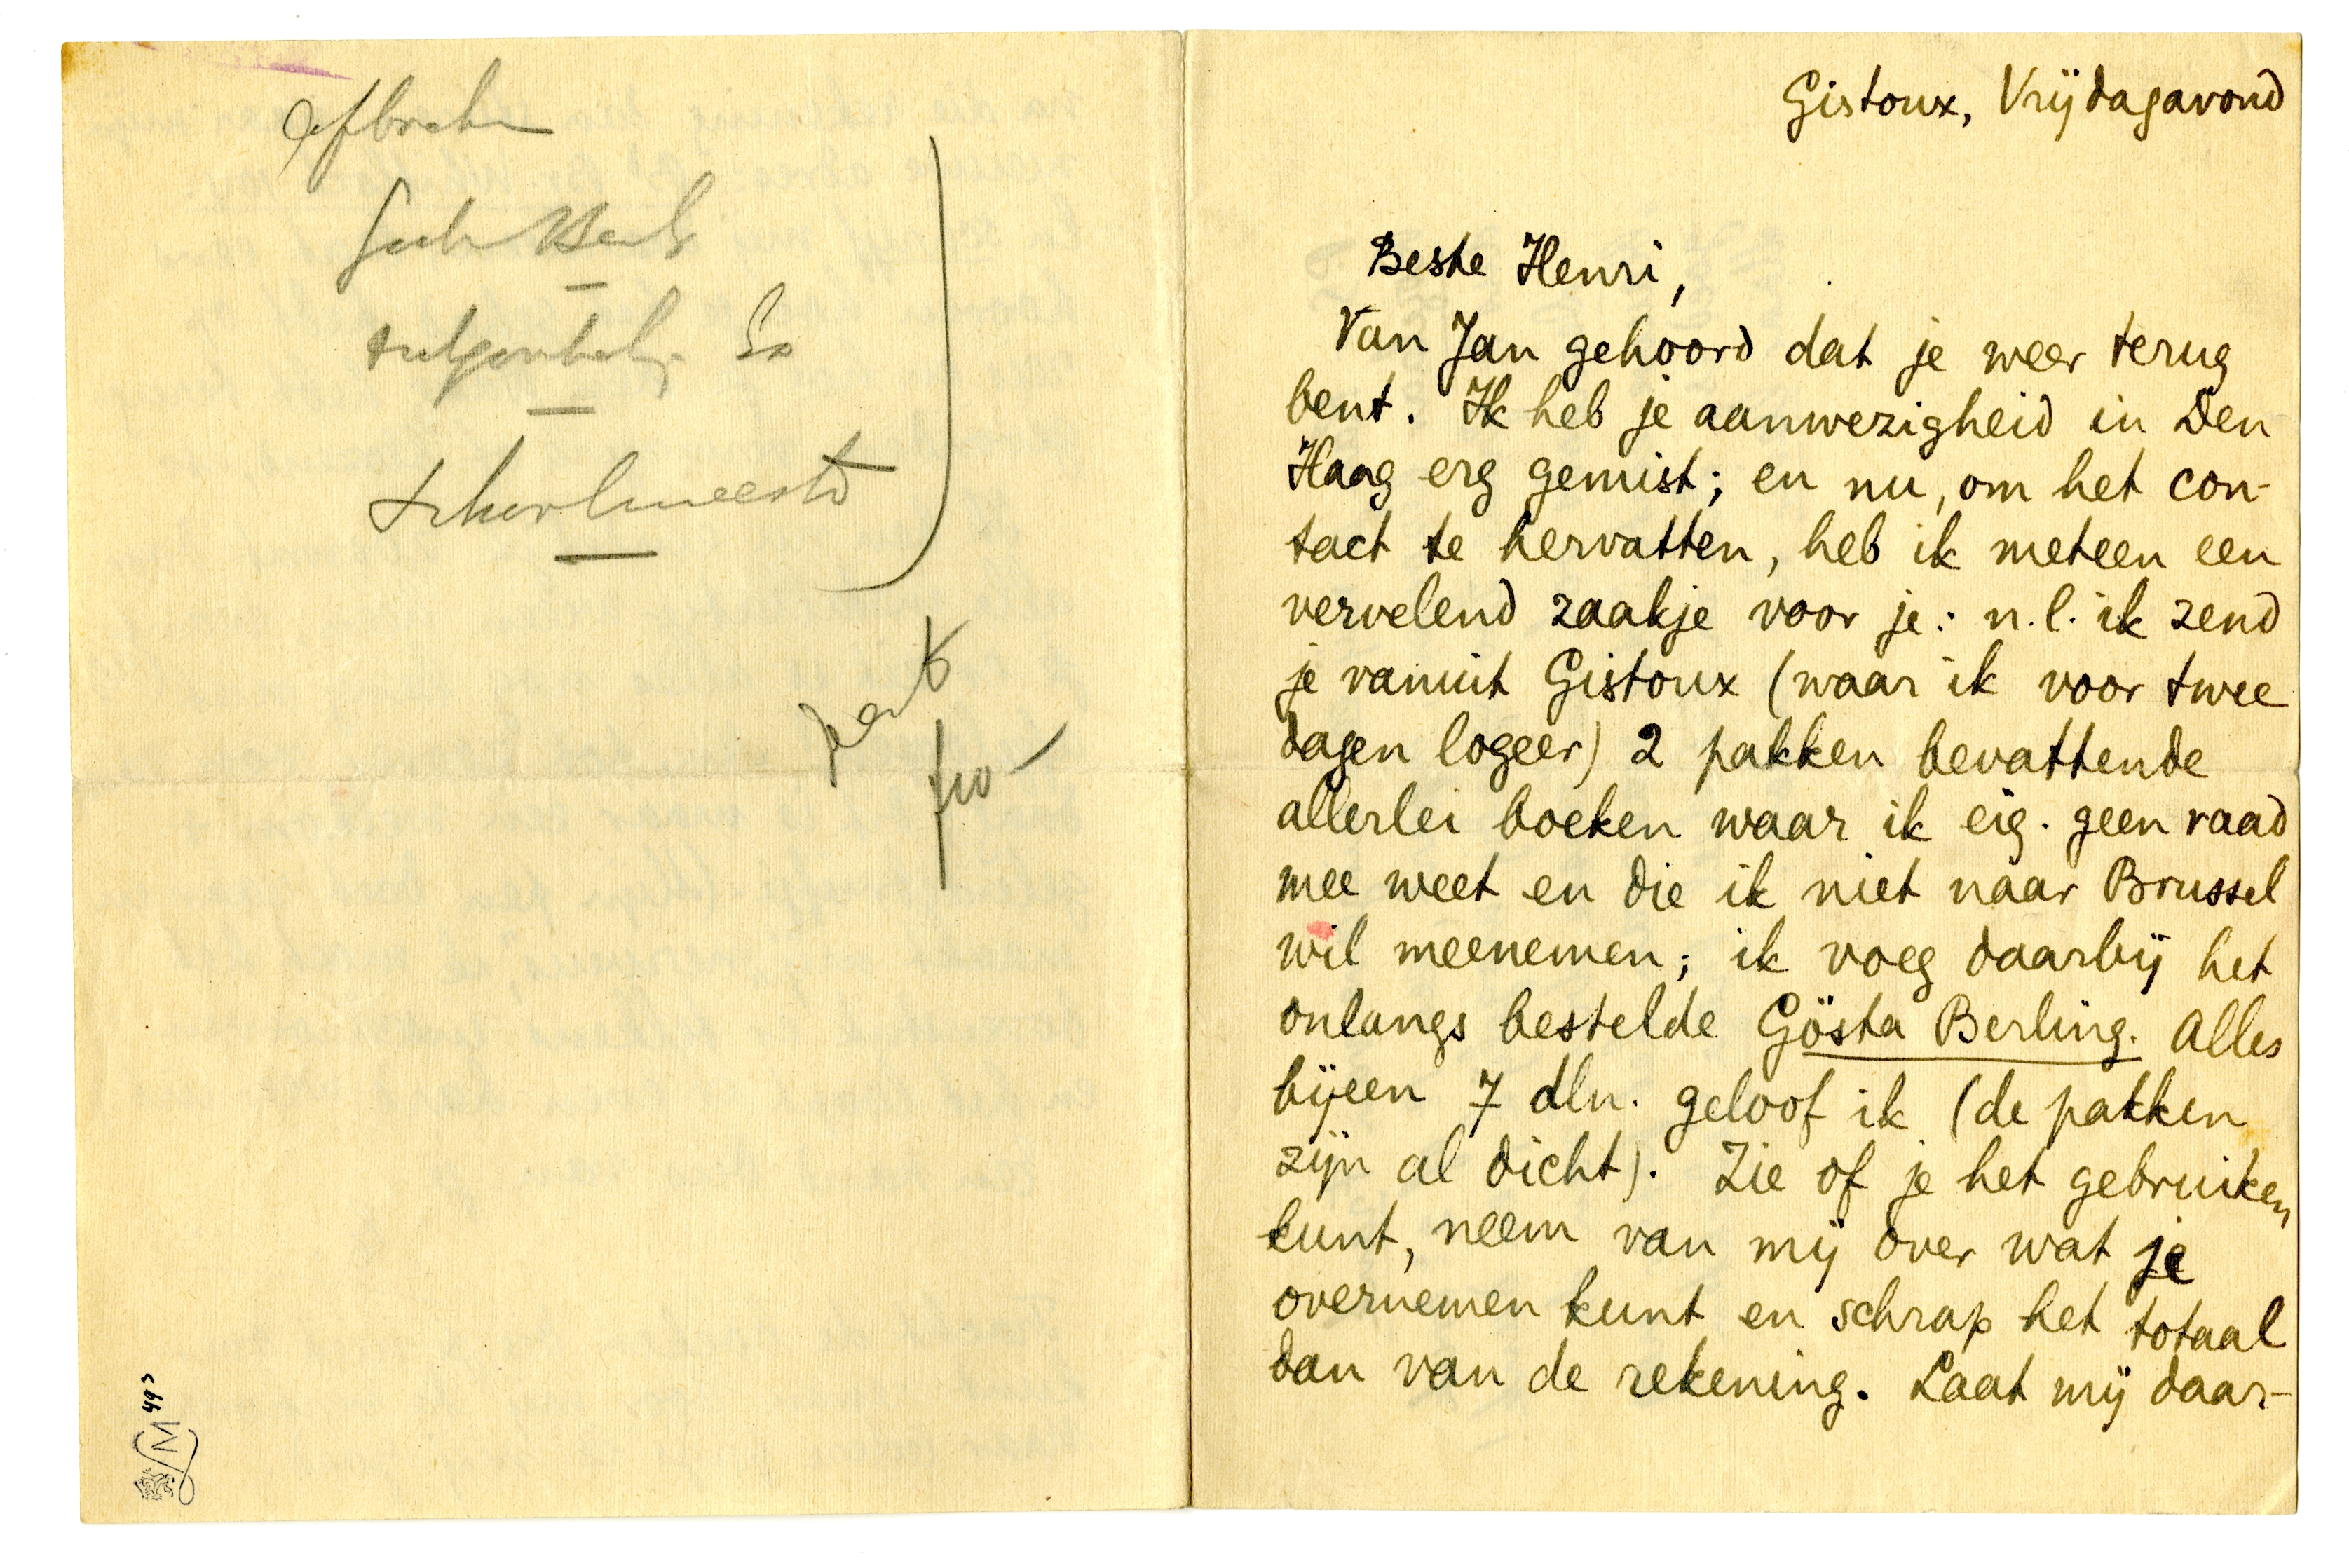 Gistoux, Vrijdagavond
Beste Henri,
Van Jan gehoord dat je weer terug
bent. Ik heb je aanwezigheid in Den
Haag erg gemist; en nu, om het con-
tact te hervatten, heb ik meteen een
vervelend zaakje voor je: n.l. ik zend
je vanuit Gistoux (waar ik voor twee
dagen logeer) 2 pakken bevattende
allerlei boeken waar ik eig. geen raad
mee weet en die ik niet naar Brussel
wil meenemen; ik voeg daarbij het
onlangs bestelde Gösta Berling. Alles
bijeen 7 dln. geloof ik (de pakken
zijn al dicht). Zie of je het gebruiken
kunt, neem van mij over wat je
overnemen kunt en schrap het totaal
dan van de rekening. Laat mij daar-